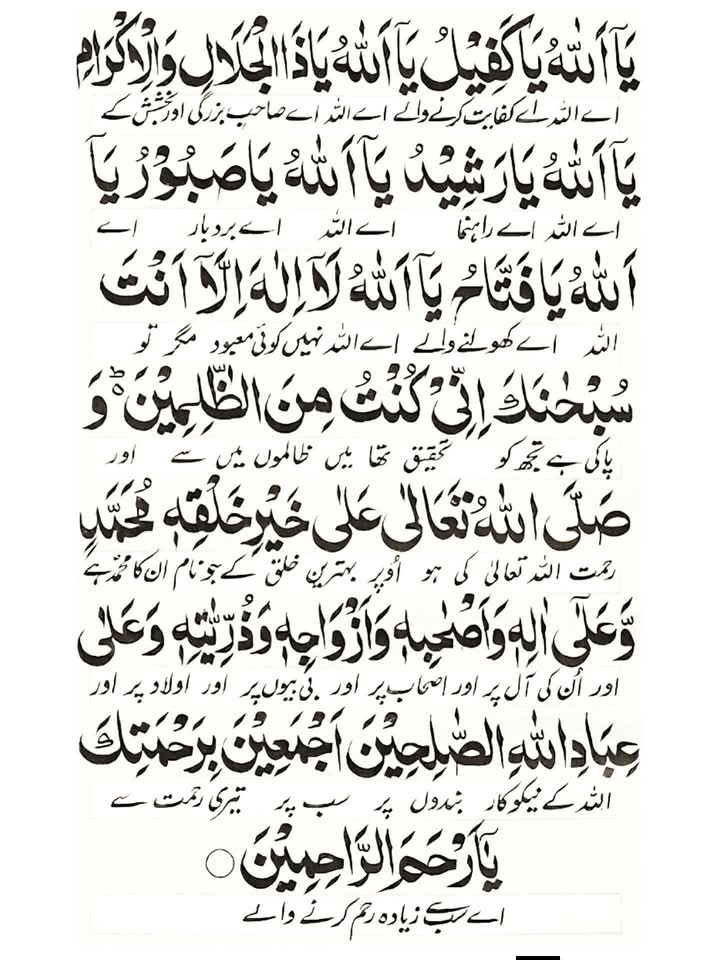 يَآ اَللّٰهُ يَا كَفِيْلُ يَآ اَللّٰهُ يَا ذَا الْجَلَالِ وَالْاِكْرَامِ
اے اللہ اے کفایت کرنے والے اے اللہ اے صاحب بزرگی اور بخشش کے
يَآ اَللّٰهُ يَا رَشِيْدُ يَآ اَللّٰهُ يَا صَبُوْرُ يَآ
اے اللہ اے راہنما اے اللہ اے بردبار اے
اَللّٰهُ يَا فَتَّاحُ يَآ اَللّٰهُ لَآ اِلٰهَ اِلَّآ اَنْتَ
اللہ اے کھولنے والے اے اللہ نہیں کوئی معبود مگر تو
سُبْحٰنَكَ اِنِّيْ كُنْتُ مِنَ الظّٰلِمِيْنَ ۵ؕ وَ
پاکی ہے تجھ کو تحقیق تھا میں ظالموں میں سے اور
صَلَّى اللّٰهُ تَعَالٰى عَلٰى خَيْرِ خَلْقِهٖ مُحَمَّدٍ
رحمت اللہ تعالیٰ کی ہو اُوپر بہترین خلق کے جو نام ان کا محمدؐ ہے
وَّعَلٰٓى اٰلِهٖ وَاَصْحٰبِهٖ وَاَزْوَاجِهٖ وَذُرِّيّٰتِهٖ وَعَلٰى
اور اُن کی آل پر اور اصحاب پر اور بی بیوں پر اور اولاد پر اور
عِبَادِ اللّٰهِ الصّٰلِحِيْنَ اَجْمَعِيْنَ بِرَحْمَتِكَ
اللہ کے نیکو کار بندوں پر سب پر تیری رحمت سے
يَآ اَرْحَمَ الرَّاحِمِيْنَ ○
اے سب سے زیادہ رحم کرنے والے